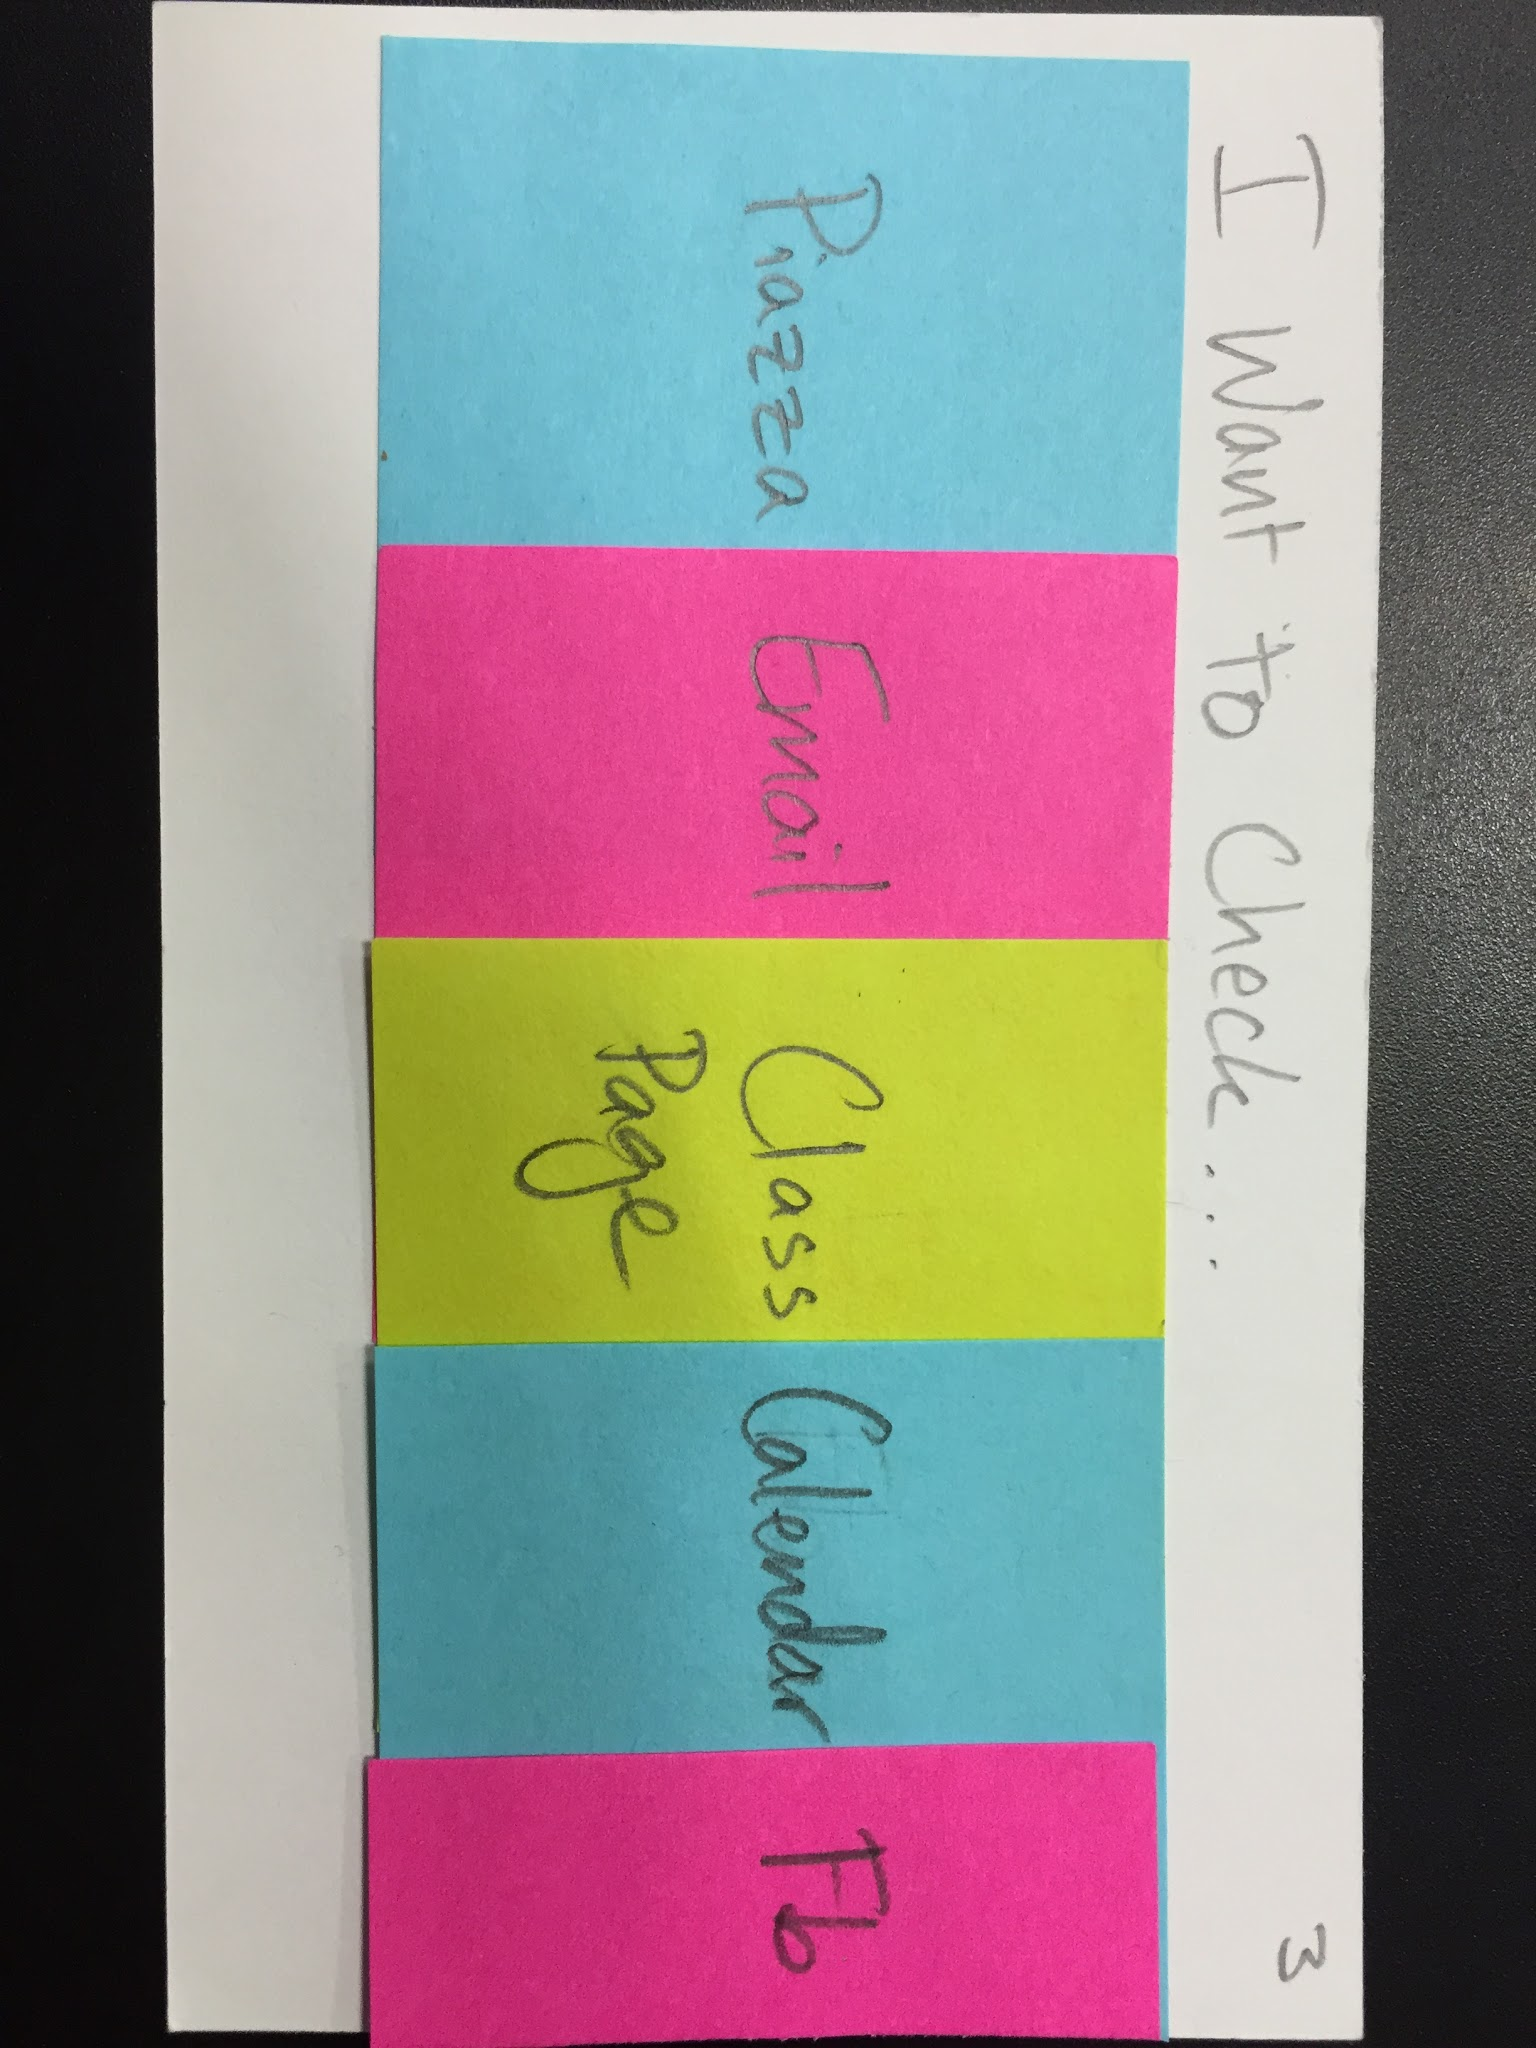 I Want to Check...
3
Piazza
Email
Class
Page
Calendar
Fb